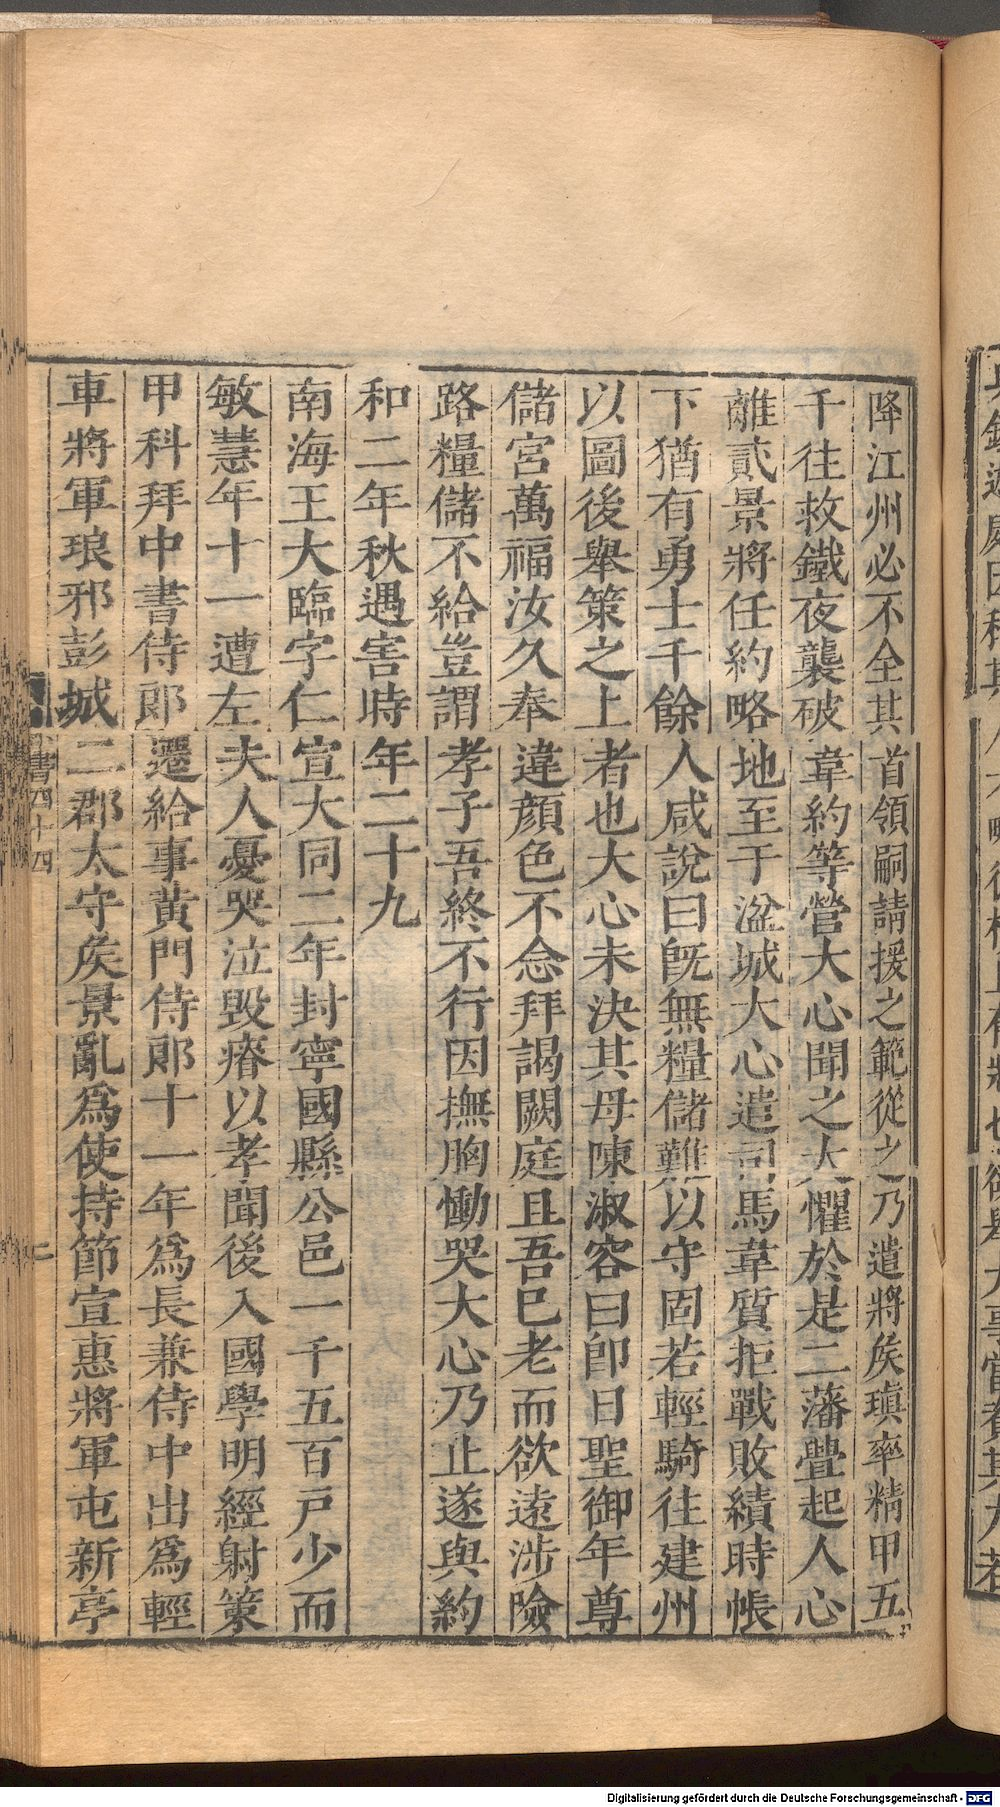 降江州必不全其首領嗣請援之範從之乃遣將侯瑱率精甲五
千往救鐵夜襲破韋約等營大心聞之大懼於是二藩舋起人心
離貳景將任約略地至于湓城大心遣司馬韋質拒戰敗績時帳
下猶有勇士千餘人咸說曰旣無糧儲難以守固若輕騎往建州
以圖後舉策之上者也大心未決其母陳淑容曰卽日聖御年尊
儲宮萬福汝久奉違顏色不念拜謁闕庭且吾已老而欲遠涉險
路糧儲不給豈謂孝子吾終不行因撫胸慟哭大心乃止遂與約
和二年秋遇害時年二十九
南海王大臨字仁宣大同二年封寧國縣公邑一千五百戸少而
敏慧年十一遭左夫人憂哭泣毀瘠以孝聞後入國學明經射策
甲科拜中書侍郎遷給事黃門侍郎十一年爲長兼侍中出爲輕
車將軍琅邪彭城二郡太守侯景亂爲使持節宣惠將軍屯新亭
書四十四 二
Digitalisierung gefördert durch die Deutsche Forschungsgemeinschaft - DFG